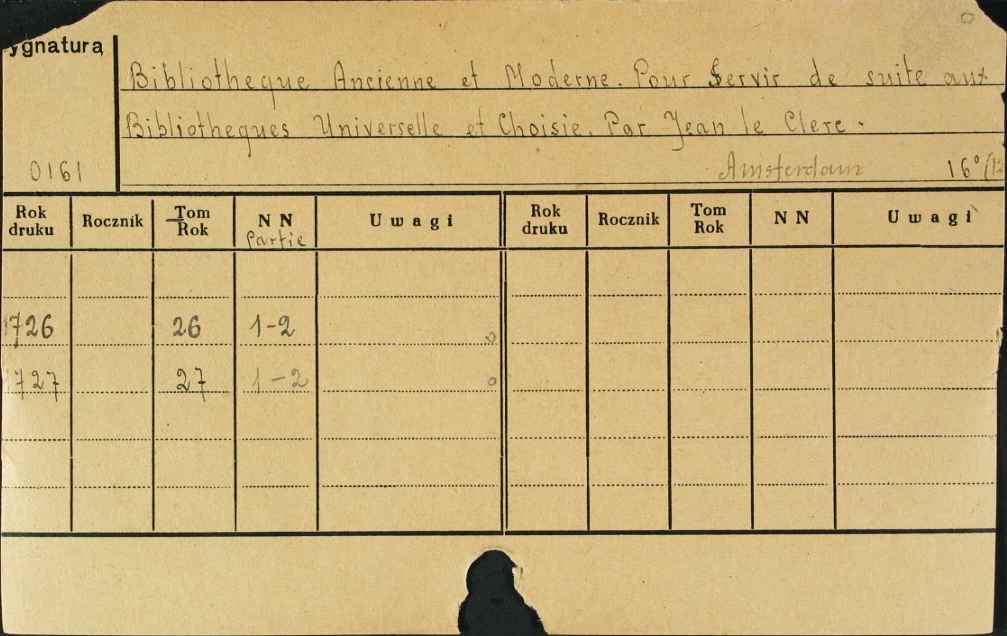 ygnatura
Bibliotheque Ancienne et Moderne. Pour Servir de suite aux
Bibliotheques Universelle et Choisie. Par Jean le Clerc.
0161
Amsterdam 16°
Rok druku Rocznik Tom Rok NN Partie Uwagi Rok druku Rocznik Tom Rok NN Uwagi
1726 26 1-2
1727 27 1-2